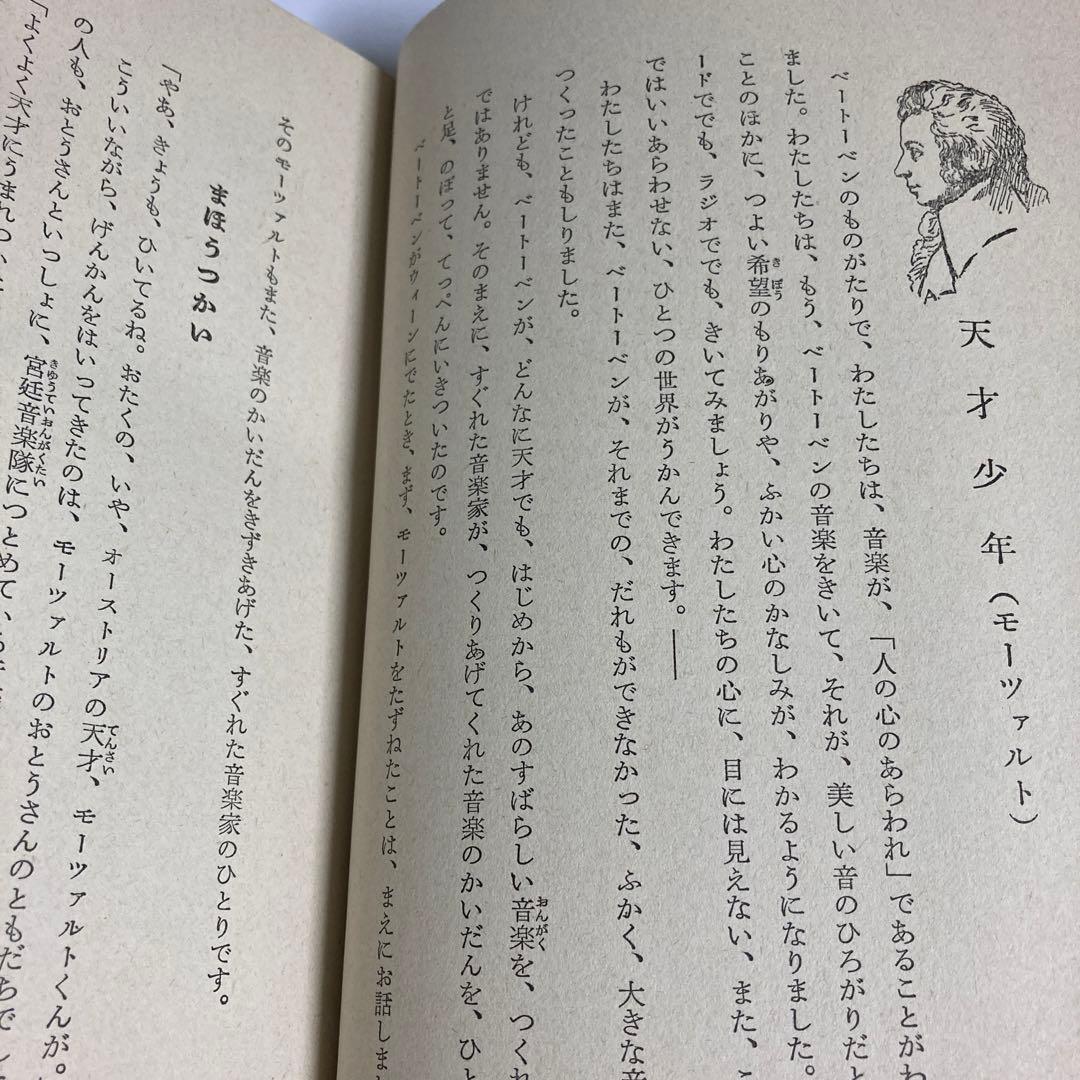 天才少年(モーツァルト)
ベートーベンのものがたりで、わたしたちは、音楽が、「人の心のあらわれ」であることがわ
ました。わたしたちは、もう、ベートーベンの音楽をきいて、それが、美しい音のひろがりだと
ことのほかに、つよい希望のもりあがりや、ふかい心のかなしみが、わかるようになりました。
きぼう
ードででも、ラジオででも、きいてみましょう。わたしたちの心に、目には見えない、また、こ
ではいいあらわせない、ひとつの世界がうかんできます。——
わたしたちはまた、ベートーベンが、それまでの、だれもができなかった、ふかく、大きな音
つくったこともしりました。
けれども、ベートーベンが、どんなに天才でも、はじめから、あのすばらしい音楽を、つくれ
おんがく
ではありません。そのまえに、すぐれた音楽家が、つくりあげてくれた音楽のかいだんを、ひと
と足、のぼって、てっぺんにいきついたのです。
ベートーベンがウィーンにでたとき、まず、モーツァルトをたずねたことは、まえにお話しまし
そのモーツァルトもまた、音楽のかいだんをきずきあげた、すぐれた音楽家のひとりです。
まほうつかい
「やあ、きょうも、ひいてるね。おたくの、いや、オーストリアの天才、モーツァルトくんが。
てんさい
こういいながら、げんかんをはいってきたのは、モーツァルトのおとうさんのともだちで
の人も、おとうさんといっしょに、宮廷音楽隊につとめて、
きゅうていおんがくたい
「よくよく天才にうまれつ